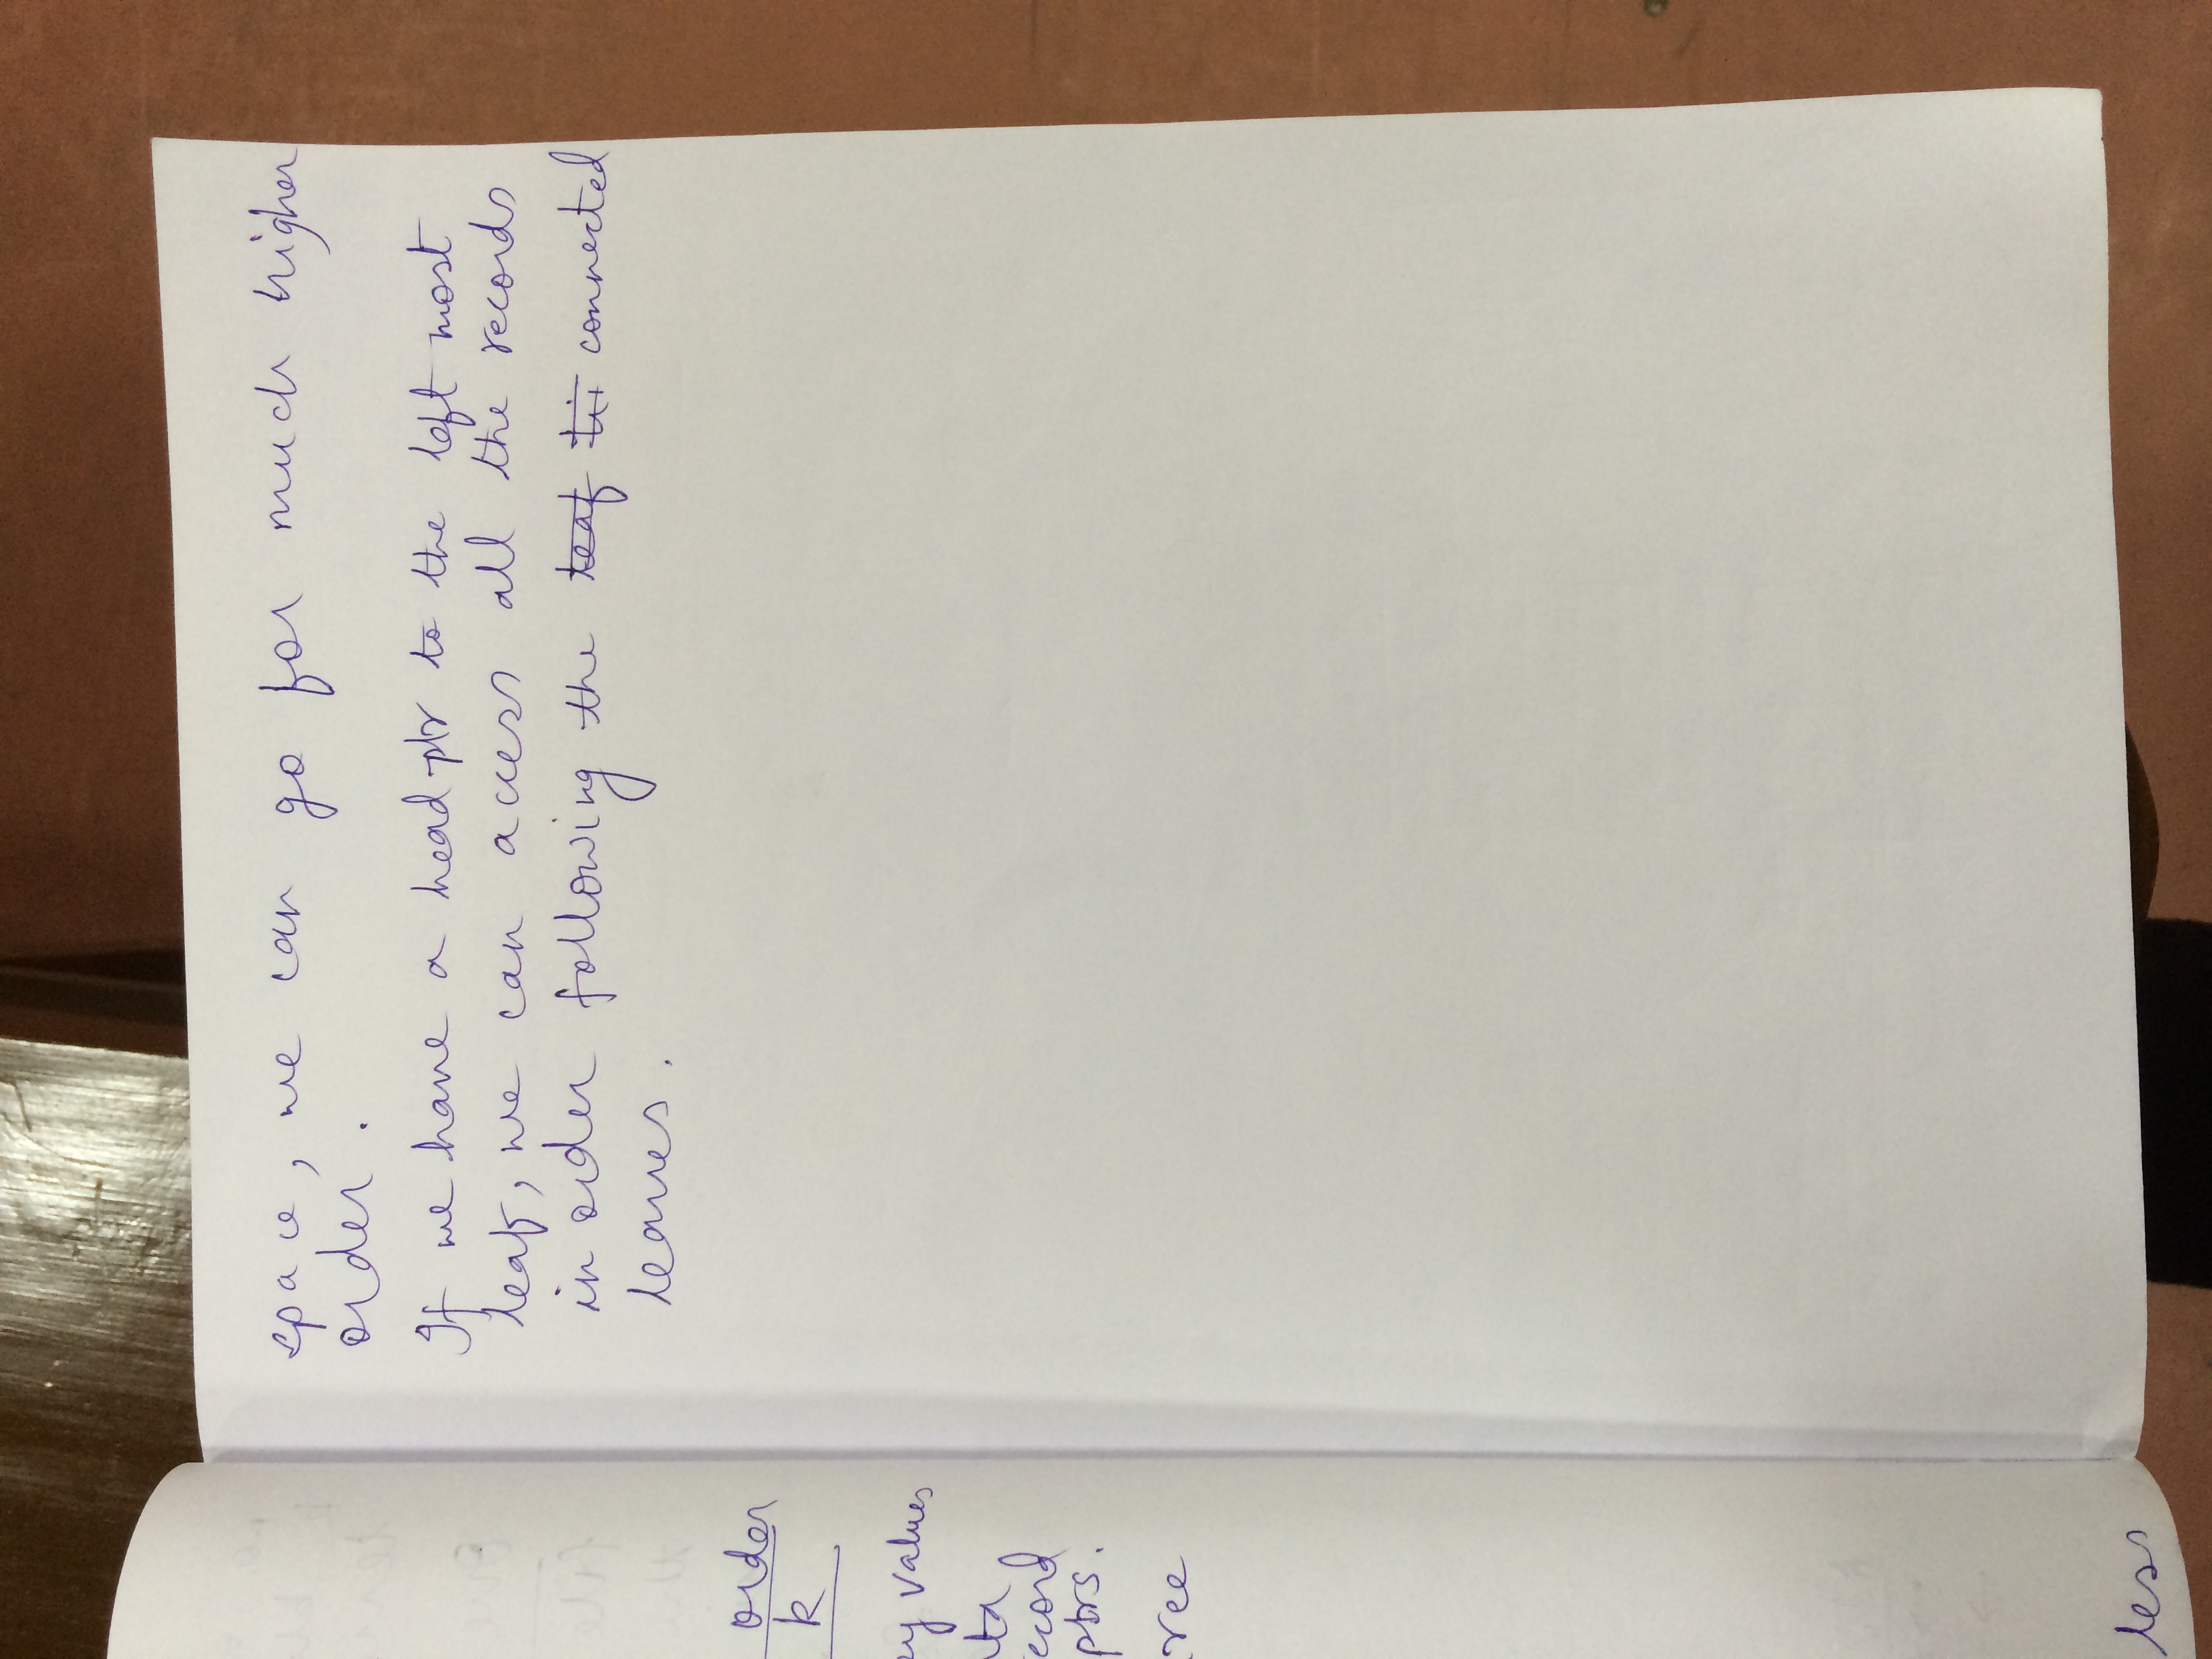 order
k
values
record
ptrs.
less
space, we can go for much higher
order.
If we have a head ptr to the left most
leaf, we can access all the records
in order following the leaf connected
leaves.